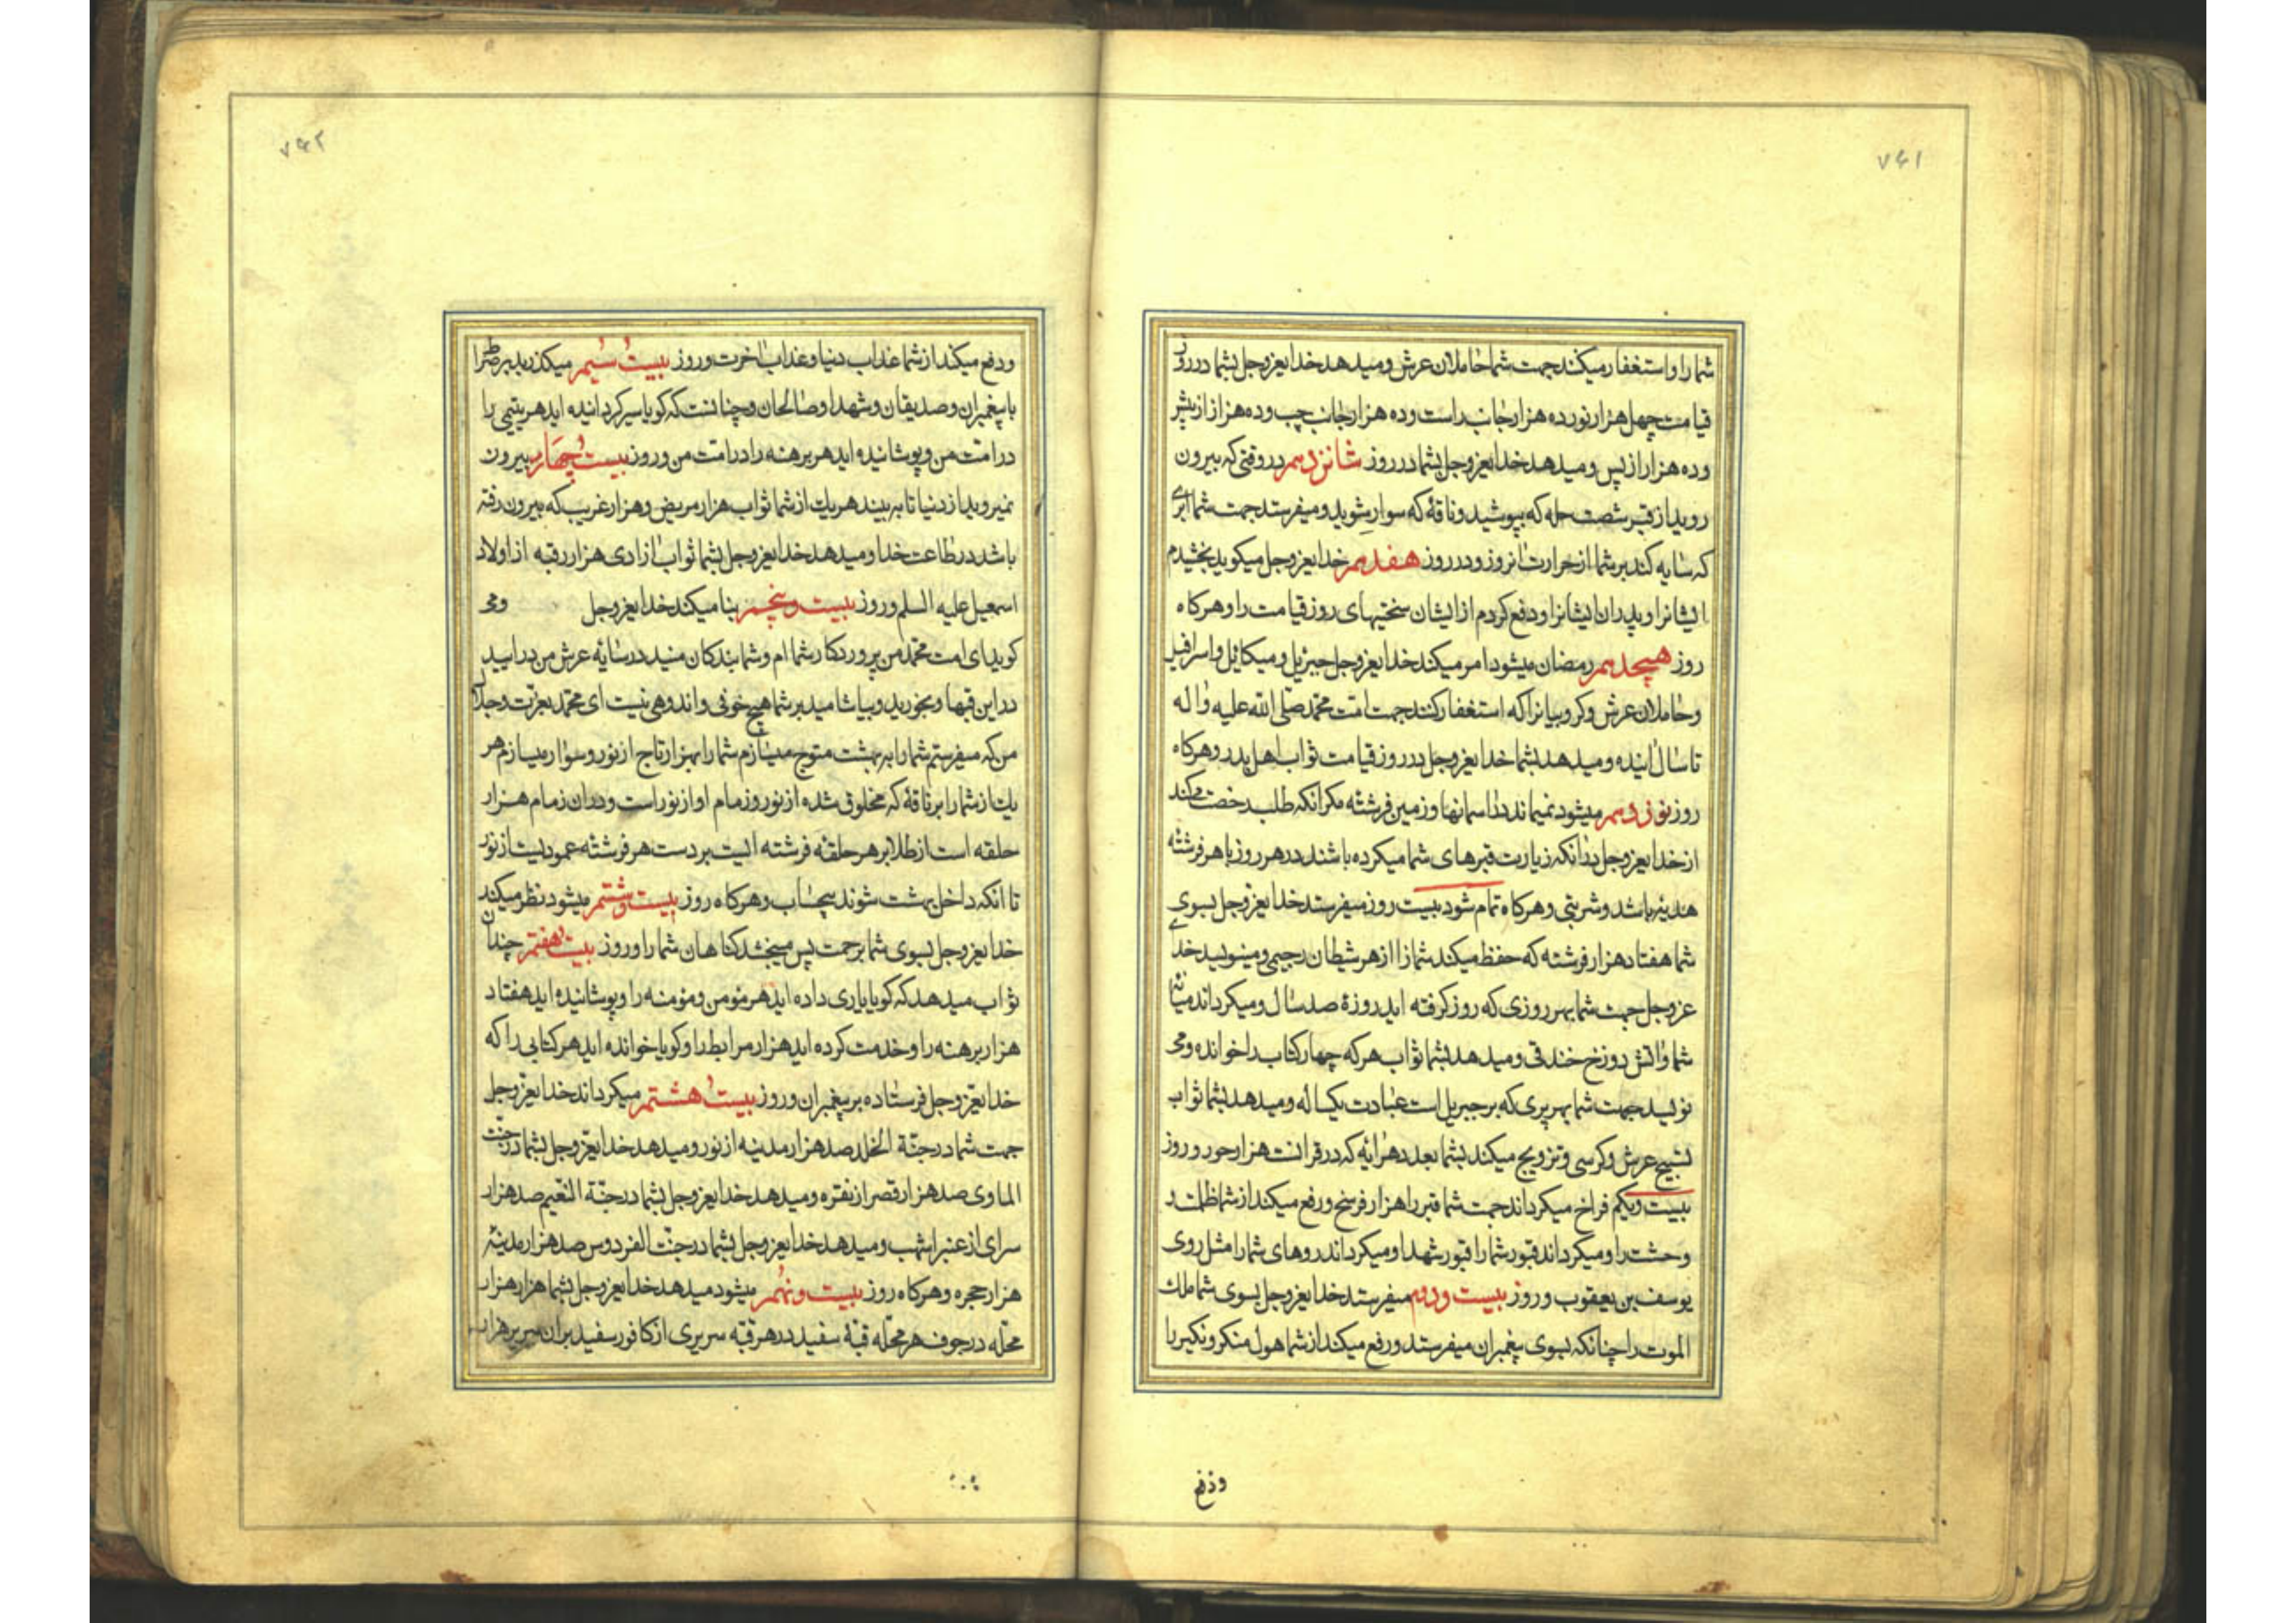 ۷۴۱
شما را و استغفار میکنند جهت شما حاملان عرش و میدهد خدایعزوجل بشما در روز
قیامت چهل هزار نور ده هزار جانب راست و ده هزار جانب چپ و ده هزار از پیش
و ده هزار از پس و میدهد خدایعزوجل بشما در روز شانزدهم در وقتی که بیرون
روید از قبر شصت حله که بپوشید و ناقۀ که سوار شوید و میفرستد جهت شما ابری
که سایه کند بر شما از حرارت انروز و در روز هفدهم خدایعزوجل میکوید بخشیدم
ایشانرا و پدران ایشانرا و دفع کردم از ایشان سختیهای روز قیامت را و هرکاه
روز هیجدهم رمضان میشود امر میکند خدایعزوجل جبرئیل و میکائیل و اسرافیل
و حاملان عرش و کروبیانرا که استغفار کنند جهت امت محمد صلی الله علیه و اله
تا سال اینده و میدهد بشما خدایعزوجل در روز قیامت ثواب اهل بدر و هرکاه
روز نوزدهم میشود نمیماند در اسمانها و زمین فرشته مکر انکه طلب رخصت میکند
از خدایعزوجل در انکه زیارت قبرهای شما میکرده باشند در هر روز با هر فرشته
هدیه باشد و شربتی و هرکاه تمام شود بیست روز میفرستد خدایعزوجل بسوی
شما هفتاد هزار فرشته که حفظ میکند شما را از هر شیطان رجیمی و مینویسد خدای
عزوجل جهت شما بهر روزی که روز کرفته اید روزۀ صد سال و میکرداند میانۀ
شما و اتش دوزخ خندقی و میدهد بشما ثواب هر که چهار کتاب را خوانده و می
نویسد جهت شما بهر پری که بر جبریل است عبادت یکساله و میدهد بشما ثواب
تسبیح عرش و کرسی و تزویج میکند بشما بعدد هر ایه که در قرانست هزار حور و روز
بیست و یکم فراخ میکرداند جهت شما قبر را هزار فرسخ و رفع میکند از شما ظلمت و
وحشت را و میکرداند قبور شما را قبور شهدا و میکرداند روهای شما را مثل روی
یوسف بن یعقوب و روز بیست و دوم میفرستد خدایعزوجل بسوی شما ملک
الموت را چنانکه بسوی پیغمبران میفرستد و رفع میکند از شما هول منکر و نکیر را
و دفع
۷۴۲
و دفع میکند از شما عذاب دنیا و عذاب اخرت و روز بیست سیم میکذرید بر صراط
با پیغمبران و صدیقان و شهدا و صالحان و چنانست که کویا سیر کردانیده اید هر یتیمی را
در امت من و پوشانیده اید هر برهنه را در امت من و روز بیست چهارم بیرون
نمیروید از دنیا تا به بیند هر یک از شما ثواب هزار مریض و هزار غریب که بیرون رفته
باشد در طاعت خدا و میدهد خدایعزوجل بشما ثواب ازادی هزار رقبه از اولاد
اسمعیل علیه السلم و روز بیست و پنجم بنا میکند خدایعزوجل و می
کوید ای امت محمد من پروردکار شما ام و شما بندکان منید در سایۀ عرش من درایید
در این قبها و بخورید و بیاشامید بر شما هیچ خوفی و اندوهی نیست ای محمد بعزت و جلال
من که میفرستم شما را به بهشت متوج میسازم شما را بهزار تاج از نور و سوار میسازم هر
یک از شما را بر ناقۀ که مخلوق شده از نور و زمام او از نور است و در ان زمام هزار
حلقه است از طلا بر هر حلقه فرشته ایست بر دست هر فرشته عمودیست از نور
تا انکه داخل بهشت شوند بیحساب و هرکاه روز بیست و ششم میشود نظر میکند
خدایعزوجل بسوی شما برحمت پس میبخشد کناهان شما را و روز بیست هفتم چندان
ثواب میدهد که کویا یاری داده اید هر مؤمن و مؤمنه را و پوشانیده اید هفتاد
هزار برهنه را و خدمت کرده اید هزار مرابط را و کویا خوانده اید هر کتابی را که
خدایعزوجل فرستاده بر پیغمبران و روز بیست هشتم میکرداند خدایعزوجل
جهت شما در جنة الخلد صد هزار مدینه از نور و میدهد خدایعزوجل بشما در جنت
الماوی صد هزار قصر از نقره و میدهد خدایعزوجل بشما در جنة النعیم صد هزار
سرای از عنبر اشهب و میدهد خدایعزوجل بشما در جنت الفردوس صد هزار مدینه
هزار حجره و هرکاه روز بیست و نهم میشود میدهد خدایعزوجل بشما هزار هزار
محله در جوف هر محله قبۀ سفید در هر قبه سریری از کافور سفید بران سریر هزار